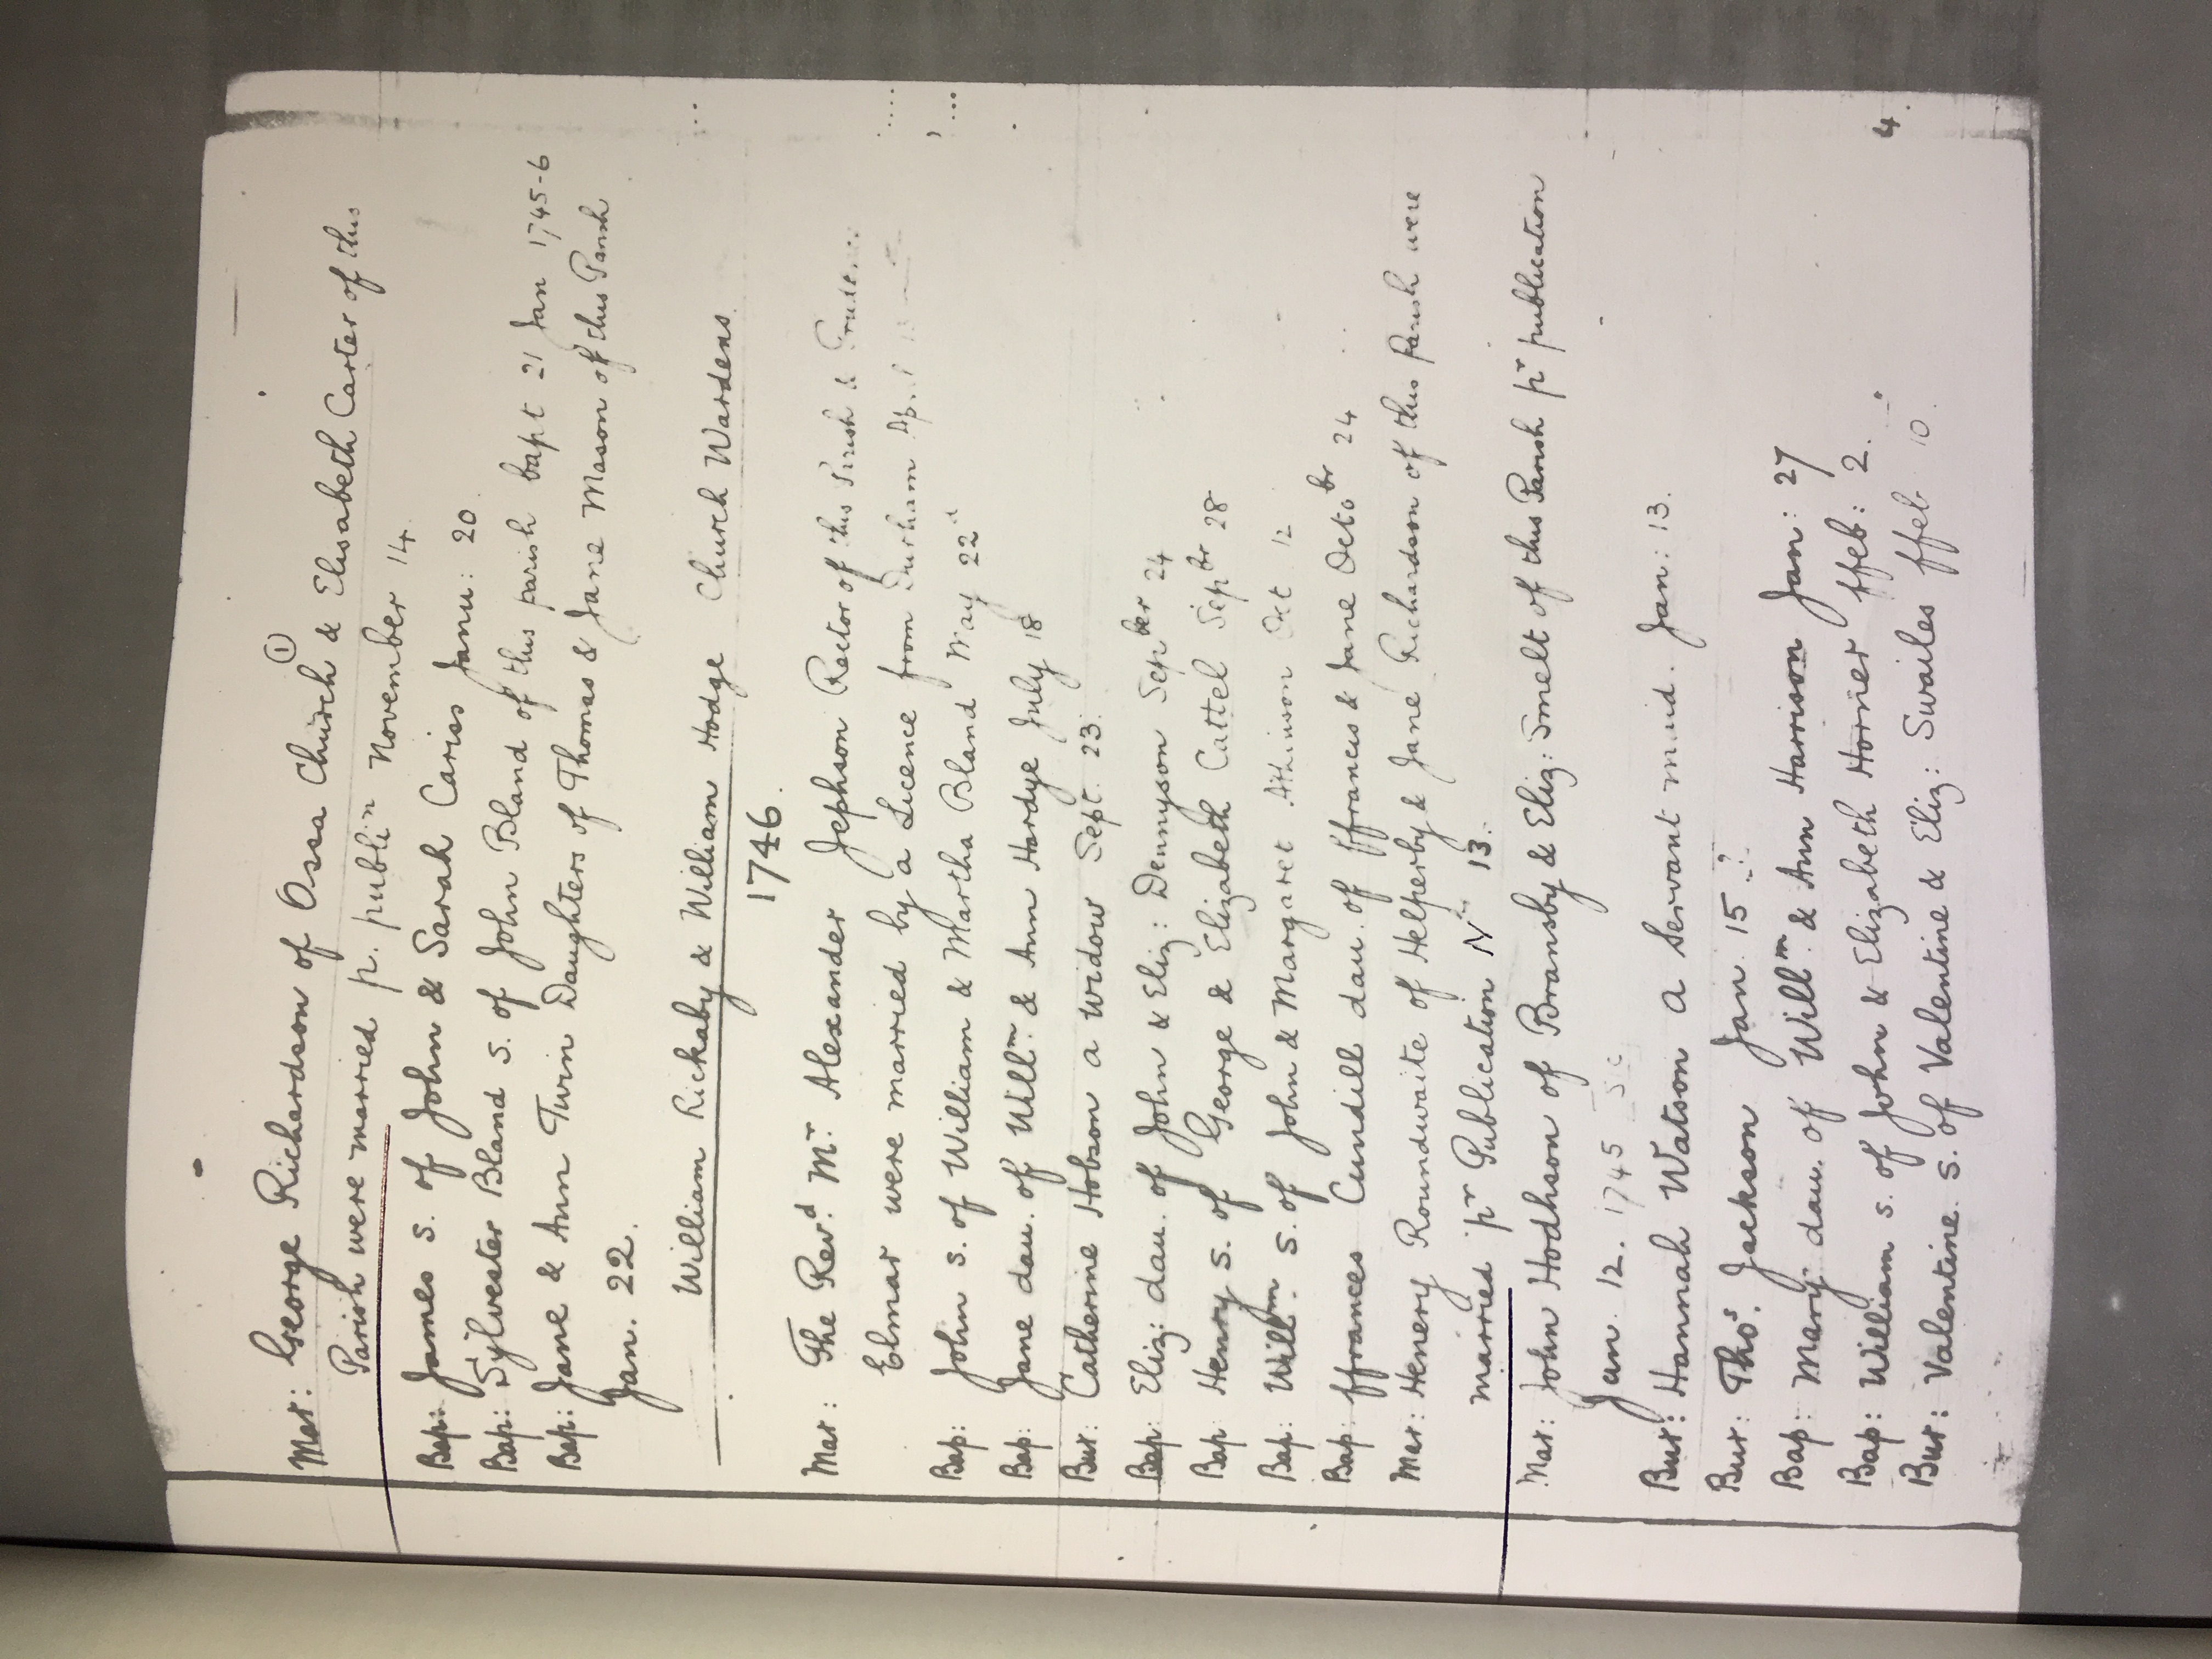 Mar: George Richardson of Ossa Church ① & Elisabeth Carter of this
Parish were married p. publin November 14.
Bap: James s. of John & Sarah Cariss Janu: 20.
Bap: Sylvester Bland s. of John Bland of this parish bapt 21 Jan 1745-6
Bap: Jane & Ann Twin Daughters of Thomas & Jane Mason of this Parish
Jan. 22.
William Rickaby & William Hodge Church Wardens.
1746.
Mar: The Revd Mr. Alexander Jephson Rector of this Parish &
Elmar were married by a Licence from Durham Apil
Bap: John s. of William & Martha Bland May 22d
Bap: Jane dau. of Willm. & Ann Hardye July 18
Bur: Catherine Hobson a widow Sept. 23.
Bap: Eliz: dau. of John & Eliz: Dennyson Sepber 24
Bap: Henry s. of George & Elizabeth Cattel Sepbr 28
Bap: Willm. s. of John & Margaret Athinson Oct 12
Bap: ffrances Cundill dau. of ffrances & Jane Octobr 24
Mar: Henery Roundwaite of Helperby & Jane Richardson of this Parish were
married pr Publication Nr 13.
Mar: John Hodhson of Bransby & Eliz: Smelt of this Parish pr publication
Jan. 12. 1745 sc
Bur: Hannah Watson a Servant maid. Jan: 13.
Bur: Thos. Jackson Jan. 15 ..?
Bap: Mary dau. of Willm. & Ann Harrison Jan: 27
Bap: William s. of John & Elizabeth Horner ffeb: 2.
Bur: Valentine s. of Valentine & Eliz: Swailes ffeb 10.
4.